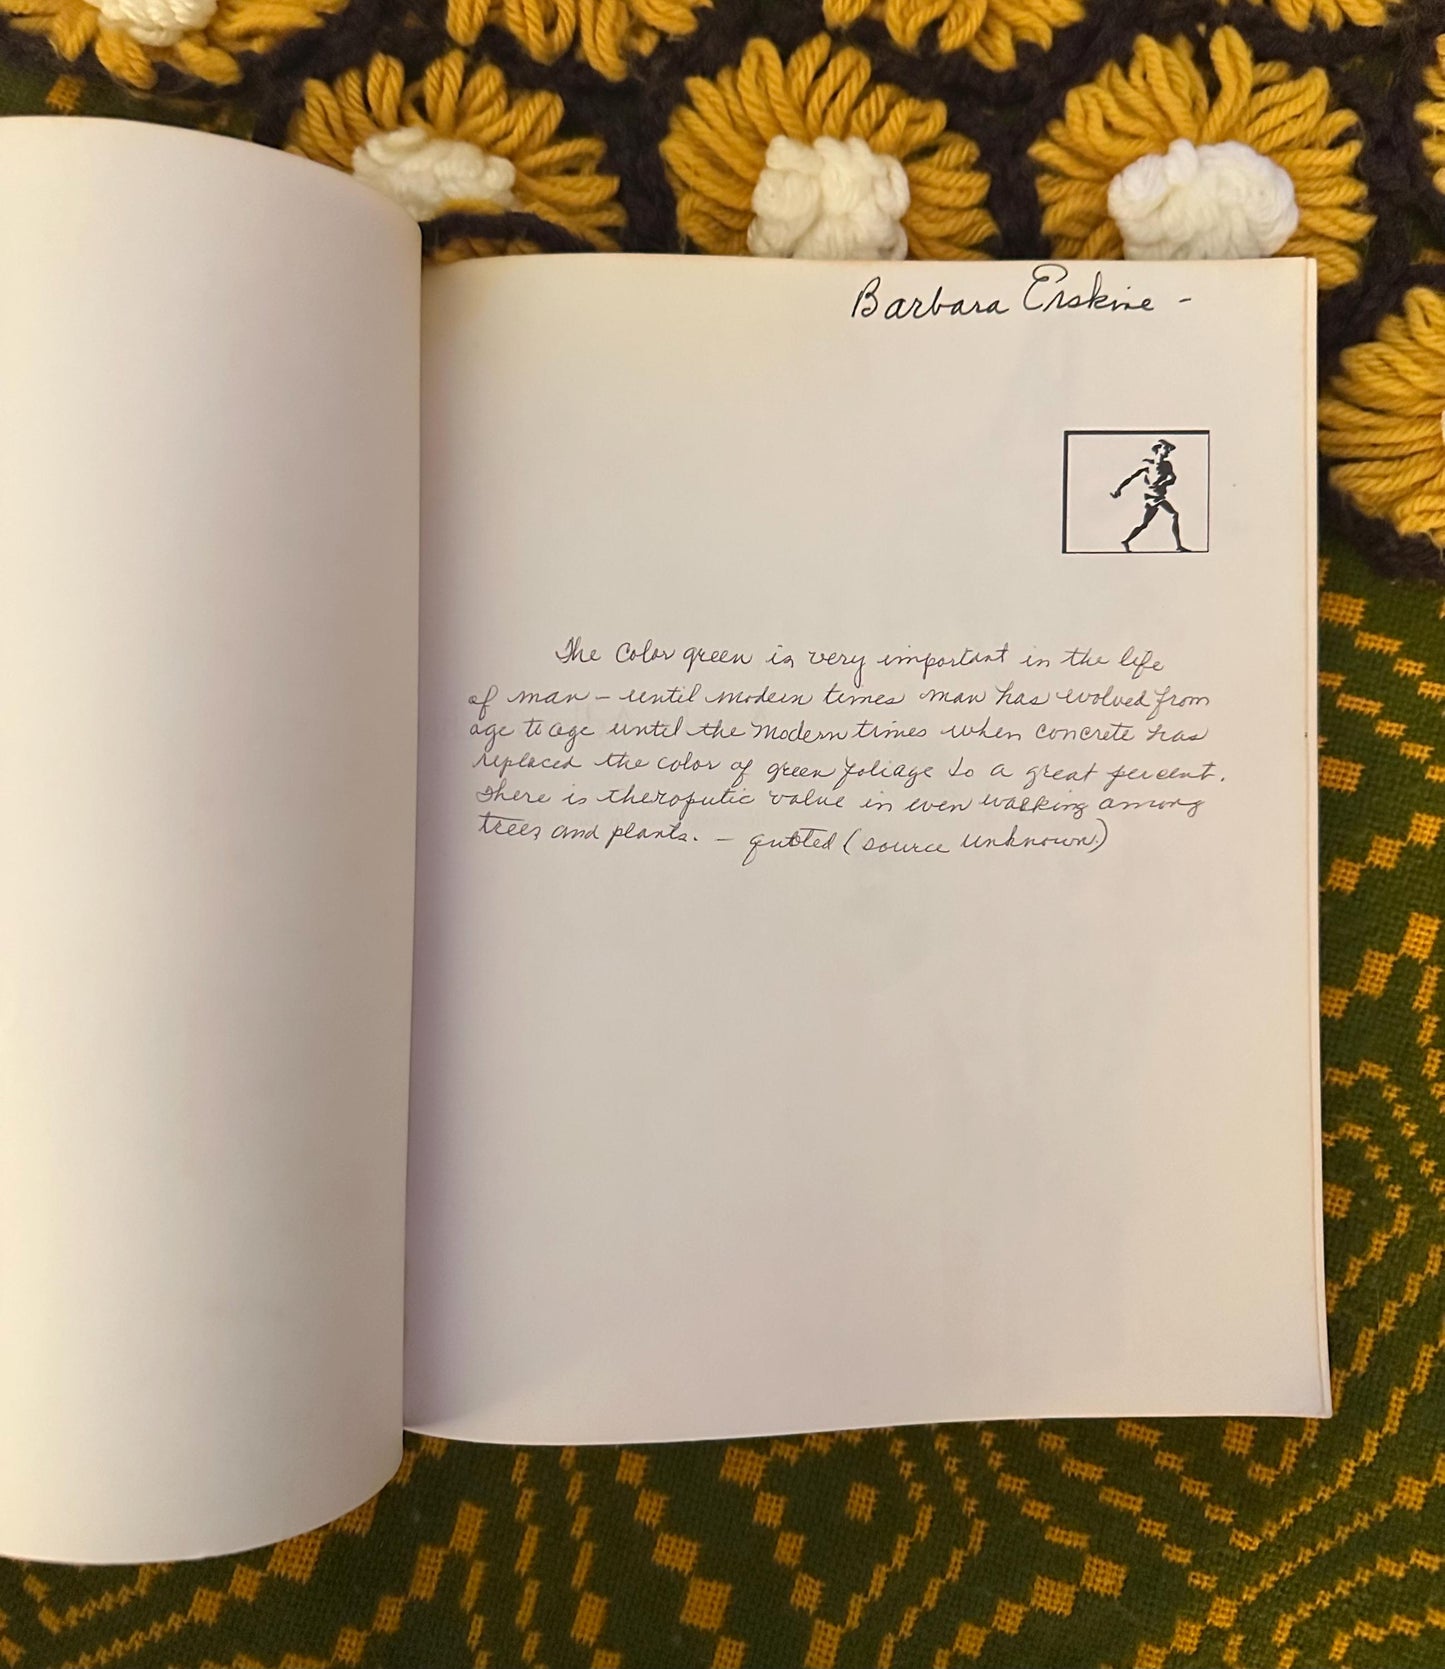 Barbara Erskine -
The Color green is very important in the life
of man - until modern times man has evolved from
age to age until the modern times when concrete has
replaced the color of green foliage to a great percent.
There is theroputic value in even walking among
trees and plants. - quoted (source unknown)